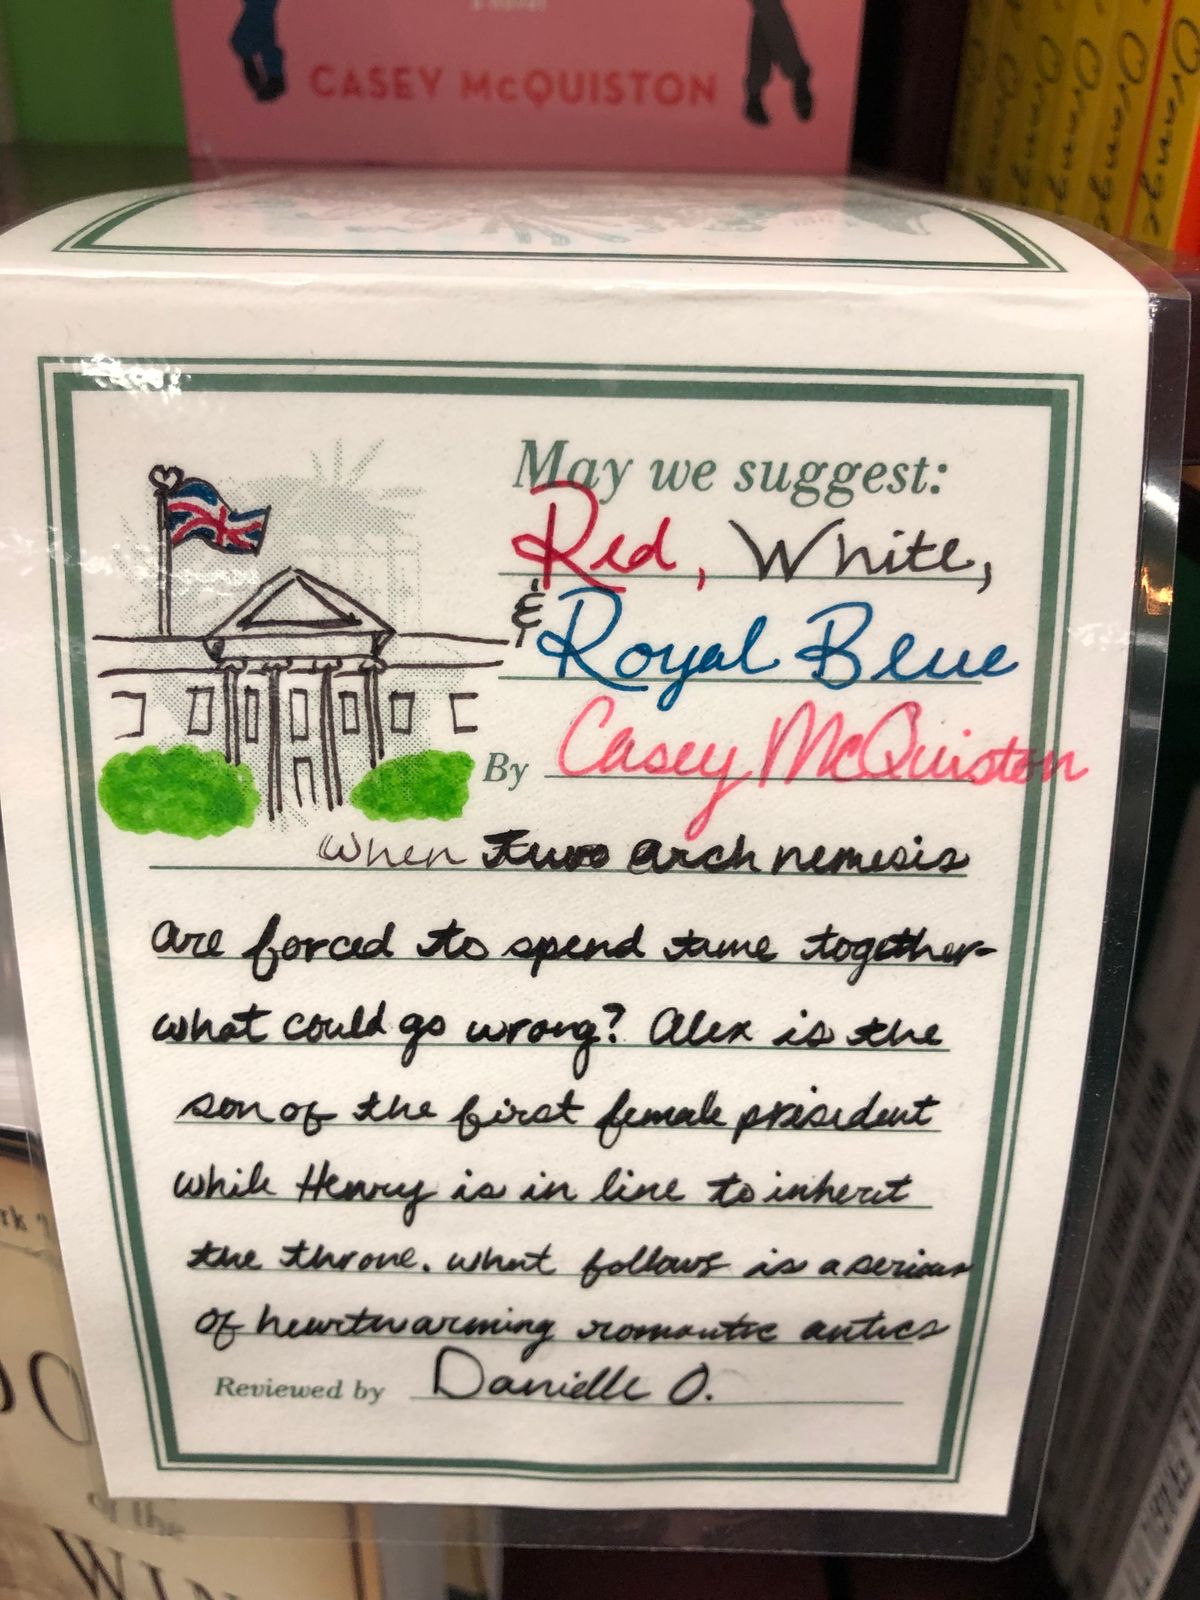 a novel
CASEY McQUISTON
Orange
Orange
Orange
Orange
May we suggest:
Red, White,
& Royal Blue
By Casey McQuiston
When two arch nemesis
are forced to spend time together-
what could go wrong? Alex is the
son of the first female president
while Henry is in line to inherit
the throne. What follows is a serious
of heartwarming romantic antics
Reviewed by Danielle O.
of the
WIN